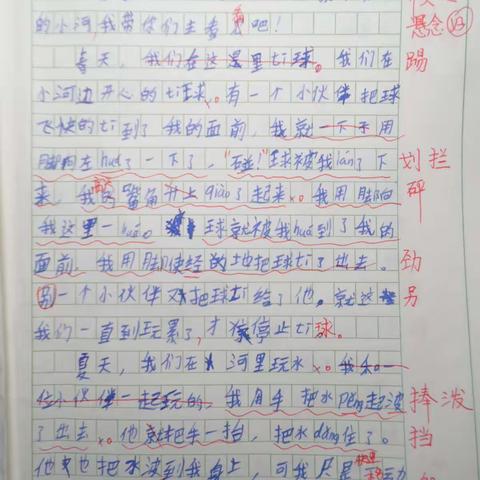 的小河,我带你们去看看吧!
悬念
春天,我们在这里ti球。我们在 踢
小河边开心的ti球。有一个小伙伴把球
飞快的ti到了我的面前,我就一下子用
脚向左huá了一下了,“砰!”球被我lán了下 划 拦
来,我的嘴角升上qiào了起来。我用脚向 砰
我这里一huá。球就被我huá到了我的
面前,我用脚使经的地把球ti了出去。 劲
别一个小伙伴又把球ti给了他。就这 另
我们一直到玩累了,才停止ti球。
夏天,我们在河里玩水。我和一
位小伙伴一起玩的,我用手把水pěng起波 捧 泼
了出去。他就把手一抬,把水dǎng住了。 挡
他也把水波到我身上,可我只是